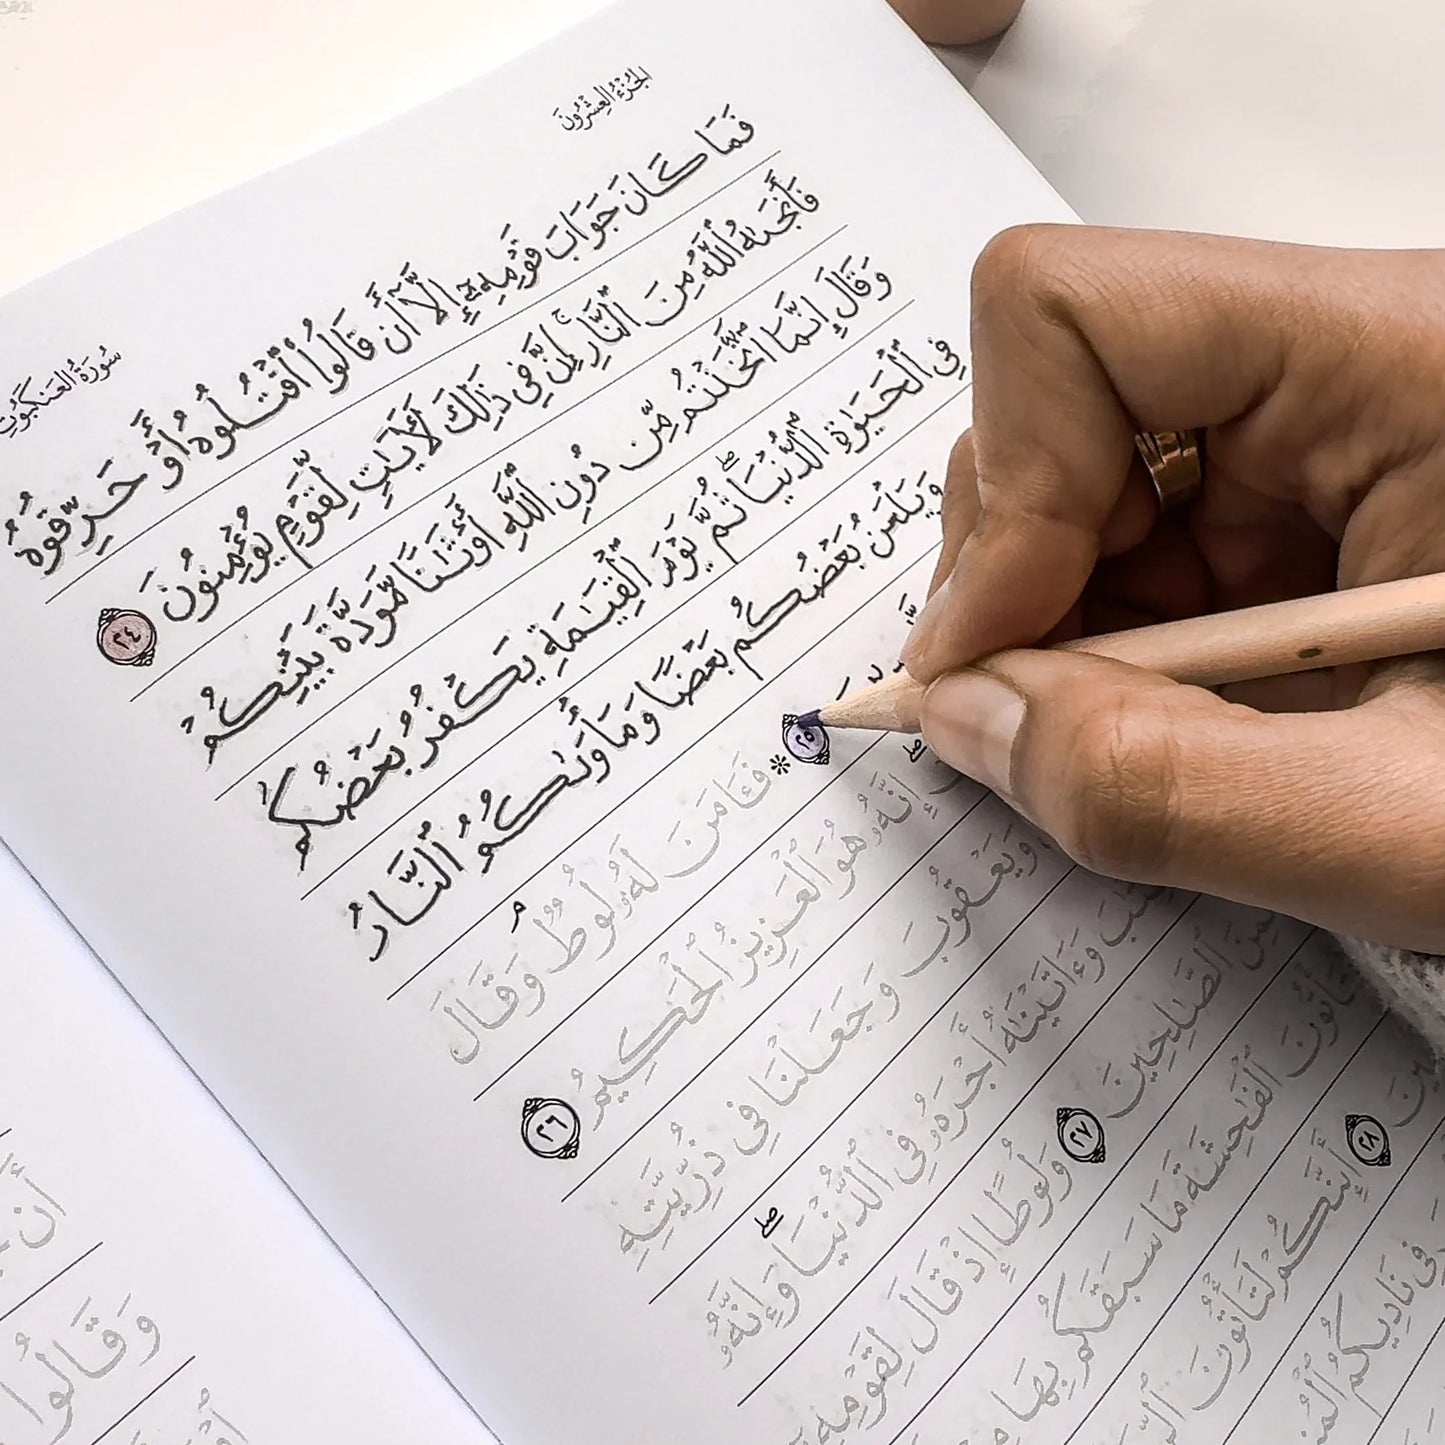 الجُزْءُ العِشْرُونَ
سُورَةُ العَنكَبُوتِ
فَمَا كَانَ جَوَابَ قَوْمِهِۦٓ إِلَّآ أَن قَالُوا۟ ٱقْتُلُوهُ أَوْ حَرِّقُوهُ
فَأَنجَىٰهُ ٱللَّهُ مِنَ ٱلنَّارِ ۚ إِنَّ فِى ذَٰلِكَ لَـَٔايَـٰتٍ لِّقَوْمٍ يُؤْمِنُونَ ٢٤
وَقَالَ إِنَّمَا ٱتَّخَذْتُم مِّن دُونِ ٱللَّهِ أَوْثَـٰنًا مَّوَدَّةَ بَيْنِكُمْ
فِى ٱلْحَيَوٰةِ ٱلدُّنْيَا ۖ ثُمَّ يَوْمَ ٱلْقِيَـٰمَةِ يَكْفُرُ بَعْضُكُم
بِبَعْضٍ وَيَلْعَنُ بَعْضُكُم بَعْضًا وَمَأْوَىٰكُمُ ٱلنَّارُ
٢٥ * فَـَٔامَنَ لَهُۥ لُوطٌ ۘ وَقَالَ
إِنَّهُۥ هُوَ ٱلْعَزِيزُ ٱلْحَكِيمُ ٢٦
وَيَعْقُوبَ وَجَعَلْنَا فِى ذُرِّيَّتِهِ
وَءَاتَيْنَـٰهُ أَجْرَهُۥ فِى ٱلدُّنْيَا ۖ وَإِنَّهُۥ
ٱلصَّـٰلِحِينَ ٢٧ وَلُوطًا إِذْ قَالَ لِقَوْمِهِۦٓ
لَتَأْتُونَ ٱلْفَـٰحِشَةَ مَا سَبَقَكُم بِهَا
٢٨ أَئِنَّكُمْ لَتَأْتُونَ
فِى نَادِيكُمُ
أَن
وَقَالُوا۟